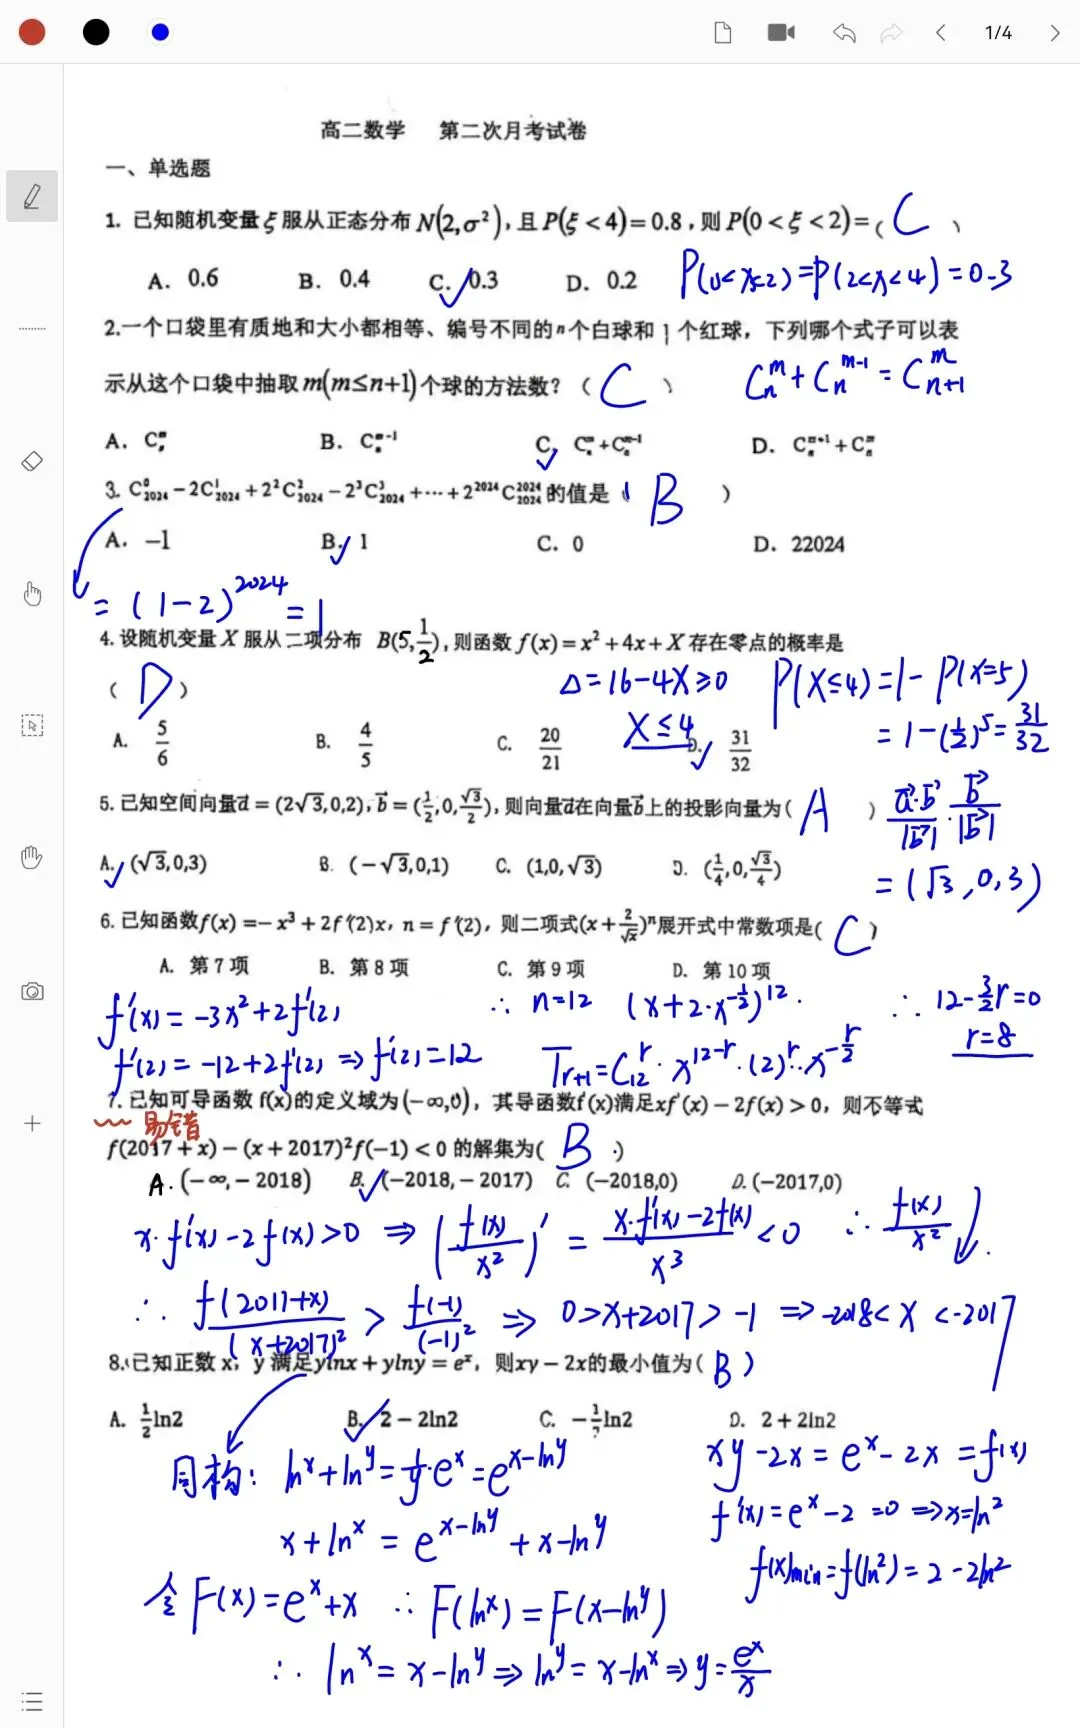 1/4
高二数学 第二次月考试卷
一、单选题
1. 已知随机变量ξ服从正态分布N(2,σ²),且P(ξ<4)=0.8,则P(0<ξ<2)=( C )
A. 0.6 B. 0.4 C. 0.3 D. 0.2 P(0<x<2)=P(2<x<4)=0.3
2.一个口袋里有质地和大小都相等、编号不同的n个白球和1个红球，下列哪个式子可以表
示从这个口袋中抽取m(m≤n+1)个球的方法数？( C ) Cₙᵐ+Cₙᵐ⁻¹=Cₙ₊₁ᵐ
A. Cₙᵐ B. Cₙᵐ⁻¹ C. Cₙᵐ+Cₙᵐ⁻¹ D. Cₙᵐ⁺¹+Cₙᵐ
3. C⁰₂₀₂₄−2C¹₂₀₂₄+2²C²₂₀₂₄−2³C³₂₀₂₄+⋯+2²⁰²⁴C²⁰²⁴₂₀₂₄的值是( B )
A. −1 B. 1 C. 0 D. 22024
=(1−2)²⁰²⁴=1
4. 设随机变量X服从二项分布 B(5,1/2),则函数f(x)=x²+4x+X存在零点的概率是
( D ) Δ=16−4X≥0 P(X≤4)=1−P(X=5)
X≤4 =1−(1/2)⁵=31/32
A. 5/6 B. 4/5 C. 20/21 D. 31/32
5. 已知空间向量a⃗=(2√3,0,2),b⃗=(1/2,0,√3/2),则向量a⃗在向量b⃗上的投影向量为( A ) a⃗·b⃗/|b⃗|·b⃗/|b⃗|
A. (√3,0,3) B. (−√3,0,1) C. (1,0,√3) D. (1/4,0,√3/4) =(√3,0,3)
6. 已知函数f(x)=−x³+2f′(2)x，n=f′(2)，则二项式(x+2/√x)ⁿ展开式中常数项是( C )
A. 第7项 B. 第8项 C. 第9项 D. 第10项
f′(x)=−3x²+2f′(2) ∴ n=12 (x+2·x^(−1/2))¹². ∴ 12−3/2r=0
f′(2)=−12+2f′(2)⇒f′(2)=12 Tᵣ₊₁=C₁₂ʳ·x¹²⁻ʳ·(2)ʳ·x^(−r/2) r=8
7. 已知可导函数f(x)的定义域为(−∞,0)，其导函数f′(x)满足xf′(x)−2f(x)>0，则不等式
易错
f(2017+x)−(x+2017)²f(−1)<0的解集为( B )
A.(−∞,−2018) B. (−2018,−2017) C. (−2018,0) D.(−2017,0)
x·f′(x)−2f(x)>0 ⇒ (f(x)/x²)′=(x·f′(x)−2f(x))/x³<0 ∴ f(x)/x²↓.
∴ f(2017+x)/(x+2017)²>f(−1)/(−1)² ⇒ 0>x+2017>−1 ⇒−2018<x<−2017
8. 已知正数x，y满足ylnx+ylny=eˣ，则xy−2x的最小值为( B )
A. 1/2ln2 B. 2−2ln2 C. −1/2ln2 D. 2+2ln2
同构: lnx+lny=1/y·eˣ=e^(x−lny) xy−2x=eˣ−2x=f(x)
x+lnx=e^(x−lny)+x−lny f′(x)=eˣ−2=0⇒x=ln2
令F(x)=eˣ+x ∴F(lnx)=F(x−lny) f(x)min=f(ln2)=2−2ln2
∴ lnx=x−lny⇒lny=x−lnx⇒y=eˣ/x